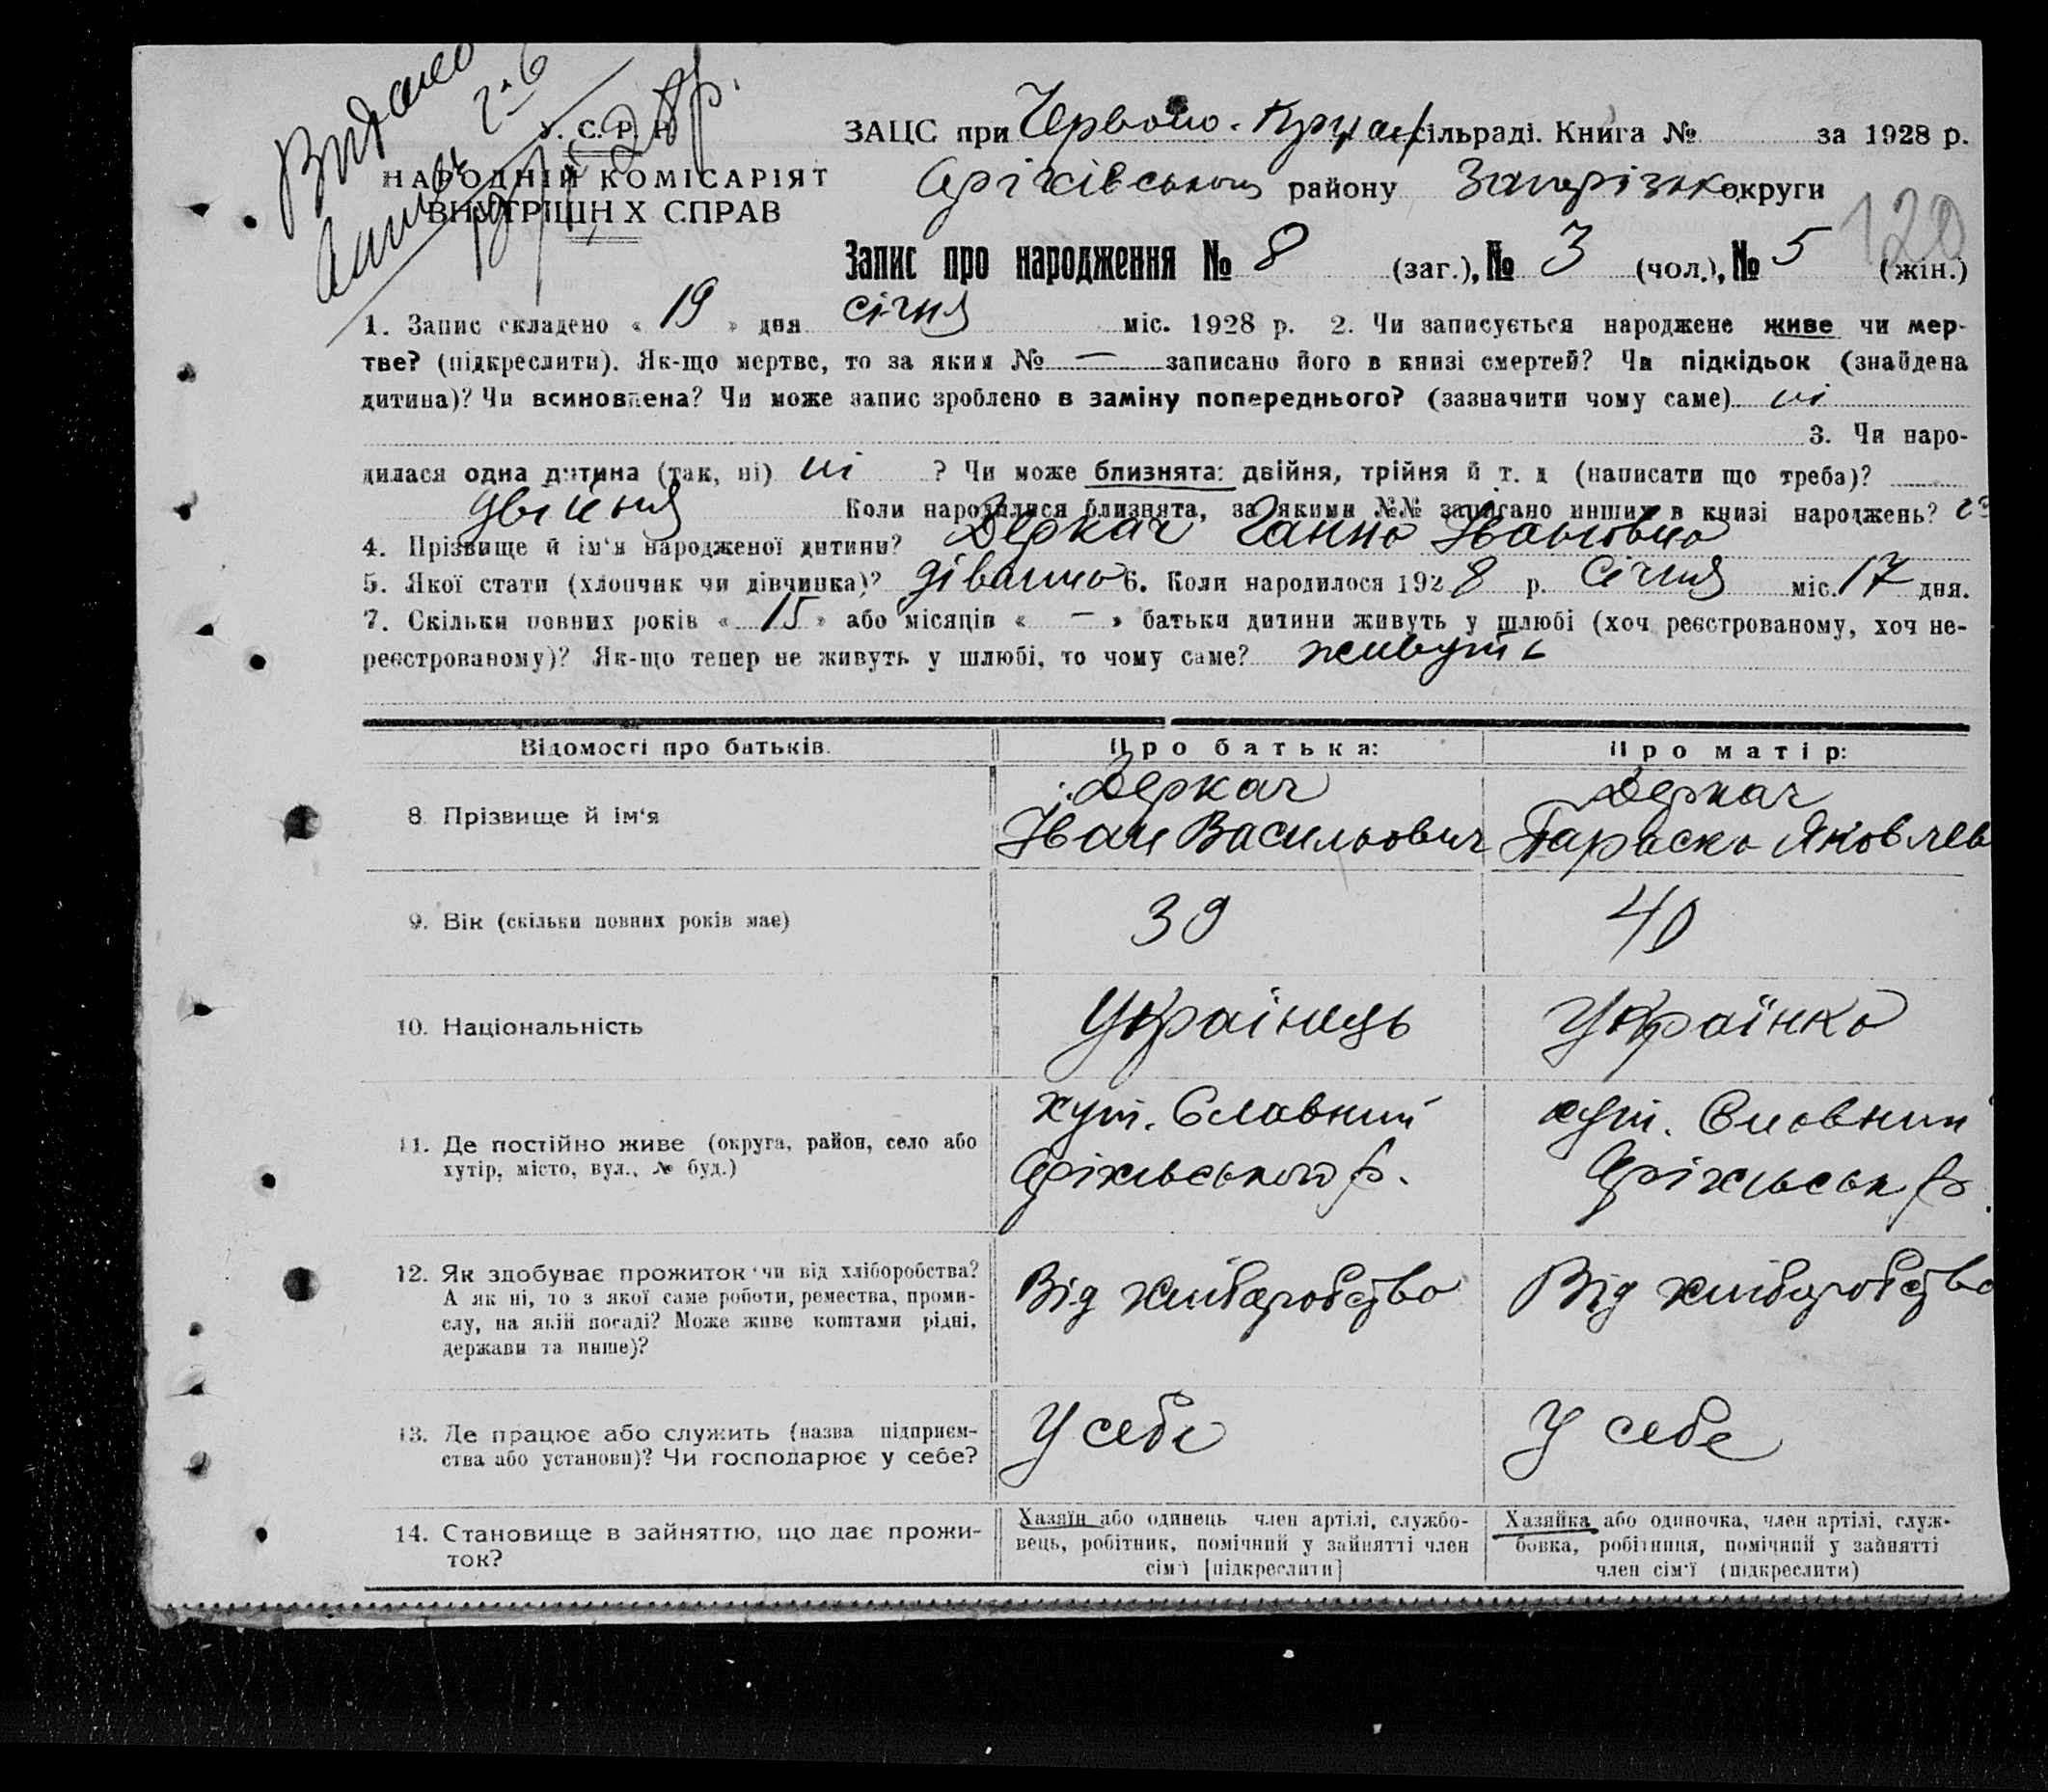 Видано
У. С. Р. Р.
НАРОДНІЙ КОМІСАРІЯТ
ВНУТРІШН Х СПРАВ
ЗАЦС при Червоно-Крут сільраді. Книга № за 1928 р.
Оріхівського району Запорізьк округи
120
Запис про народження № 8 (заг.), № 3 (чол.), № 5 (жін.)
1. Запис складено « 19 » дня січня міс. 1928 р. 2. Чи записується народжене живе чи мер-
тве? (підкреслити). Як-що мертве, то за яким № — записано його в книзі смертей? Чи підкідьок (знайдена
дитина)? Чи всиновлена? Чи може запис зроблено в заміну попереднього? (зазначити чому саме) ні
3. Чи наро-
дилася одна дитина (так, ні) ні ? Чи може близнята: двійня, трійня й т. д (написати що треба)?
двійня Коли народилися близнята, за якими №№ записано инших в книзі народжень?
4. Прізвище й ім'я народженої дитини? Деркач Ганна Івановна
5. Якої стати (хлопчик чи дівчинка)? дівчина 6. Коли народилося 1928 р. Січня міс. 17 дня.
7. Скільки повних років « 15 » або місяців « — » батьки дитини живуть у шлюбі (хоч реєстрованому, хоч не-
реєстрованому)? Як-що тепер не живуть у шлюбі, то чому саме? живуть
Відомості про батьків. Про батька: Про матір:
8 Прізвище й ім'я
Деркач
Іван Васильович
Деркач
Параска Яковлев
9. Вік (скільки повних років має) 39 40
10. Національність Українець Українка
11. Де постійно живе (округа, район, село або
хутір, місто, вул., № буд.)
хут. Славний
Оріхівського р.
хут. Славний
Оріхівськ р
12. Як здобуває прожиток чи від хліборобства?
А як ні, то з якої саме роботи, ремества, проми-
слу, на якій посаді? Може живе коштами рідні,
держави та инше)?
Від хліборобство
Від хліборобство
13. Де працює або служить (назва підприєм-
ства або установи)? Чи господарює у себе?
У себе
У себе
14. Становище в зайняттю, що дає прожи-
ток?
Хазяїн або одинець член артілі, службо-
вець, робітник, помічний у зайнятті член
сім'ї [підкреслити]
Хазяйка або одиночка, член артілі, служ-
бовка, робітниця, помічний у зайнятті
член сім'ї (підкреслити)